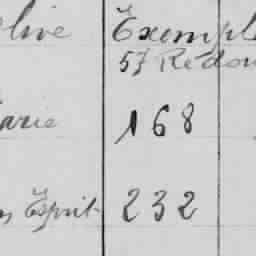 Exempl
57 Redou
arie 168
Esprit 232